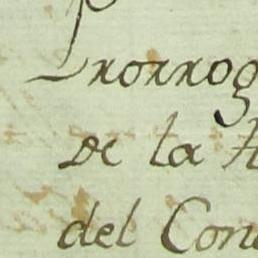 Prorrog
de la H
del Con